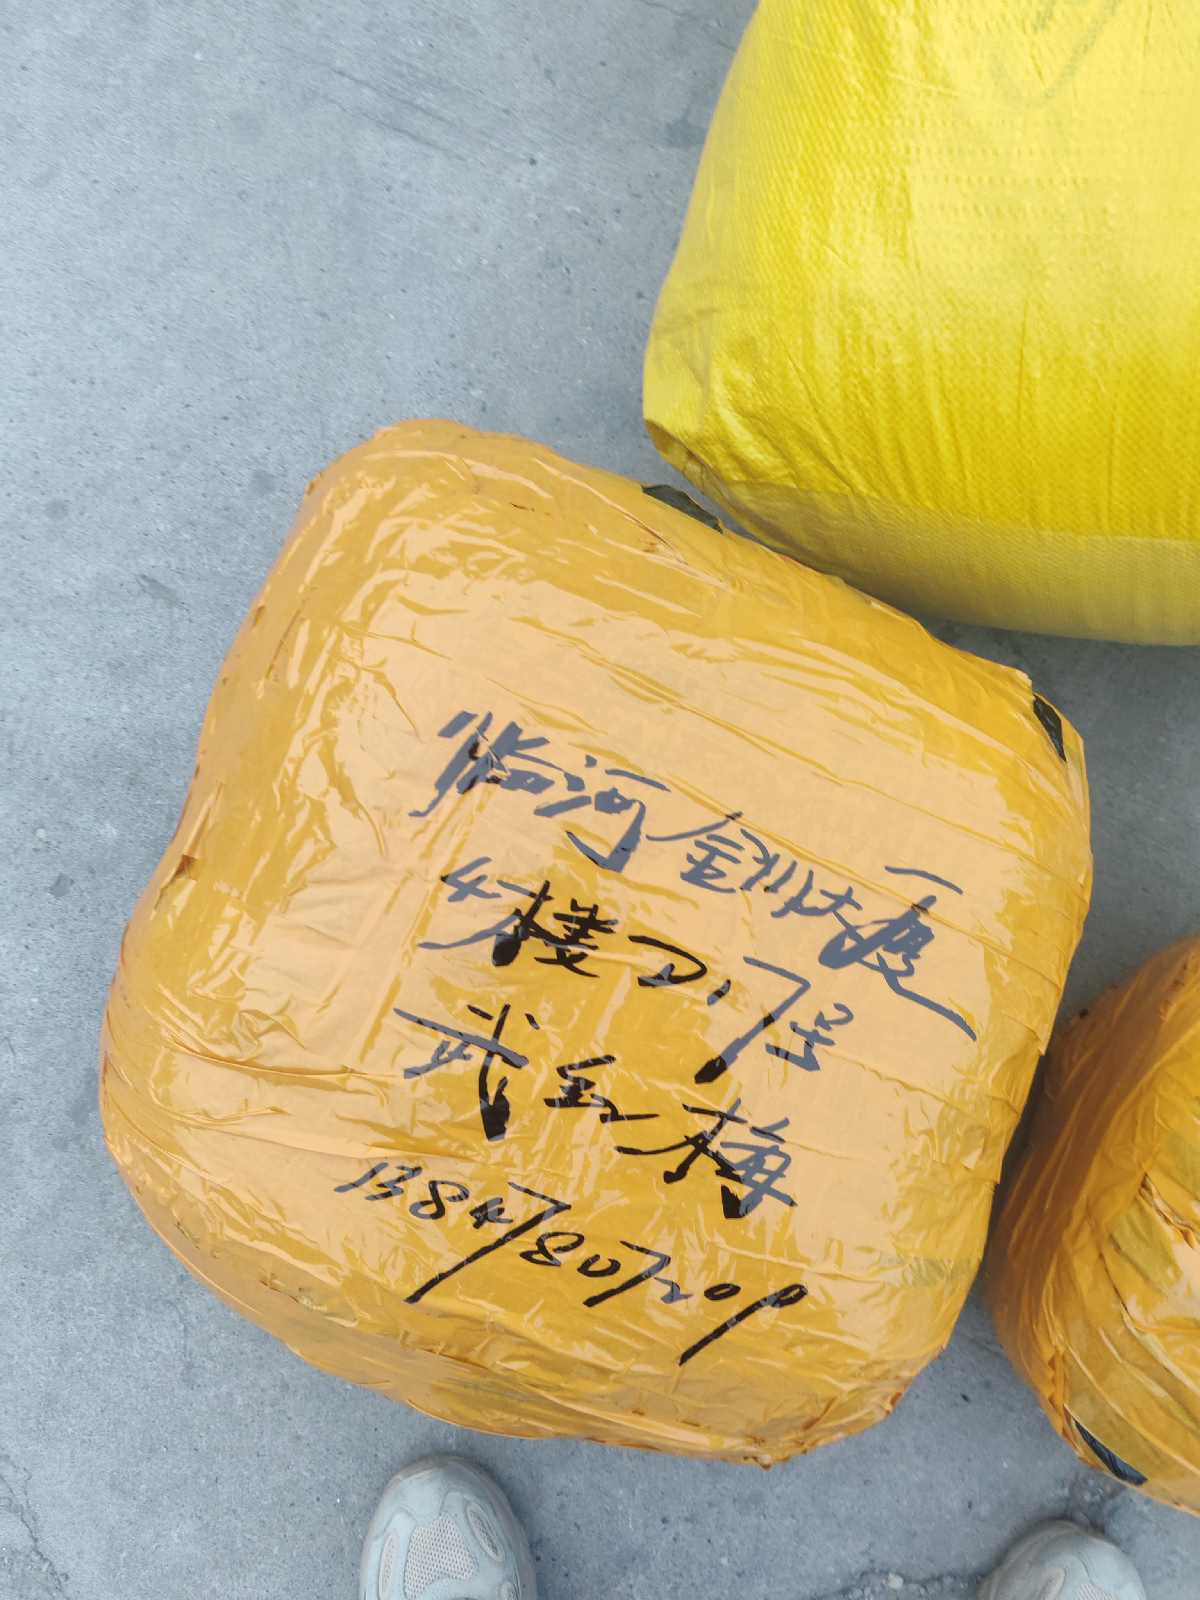 临河金川大厦一
女楼D17号
武红梅
13847807209